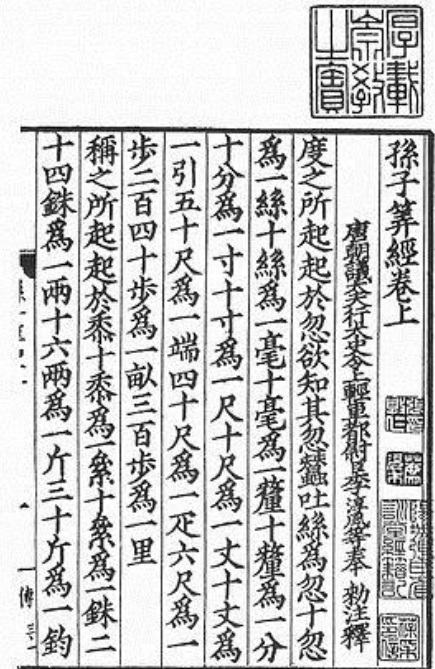 孫子筭經卷上
唐朝議大夫行太史令上輕車都尉臣李淳風等奉 勑注釋
度之所起起於忽欲知其忽蠶吐絲為忽十忽
為一絲十絲為一毫十毫為一釐十釐為一分
十分為一寸十寸為一尺十尺為一丈十丈為
一引五十尺為一端四十尺為一疋六尺為一
步二百四十步為一畝三百步為一里
稱之所起起於黍十黍為一絫十絫為一銖二
十四銖為一兩十六兩為一斤三十斤為一鈞